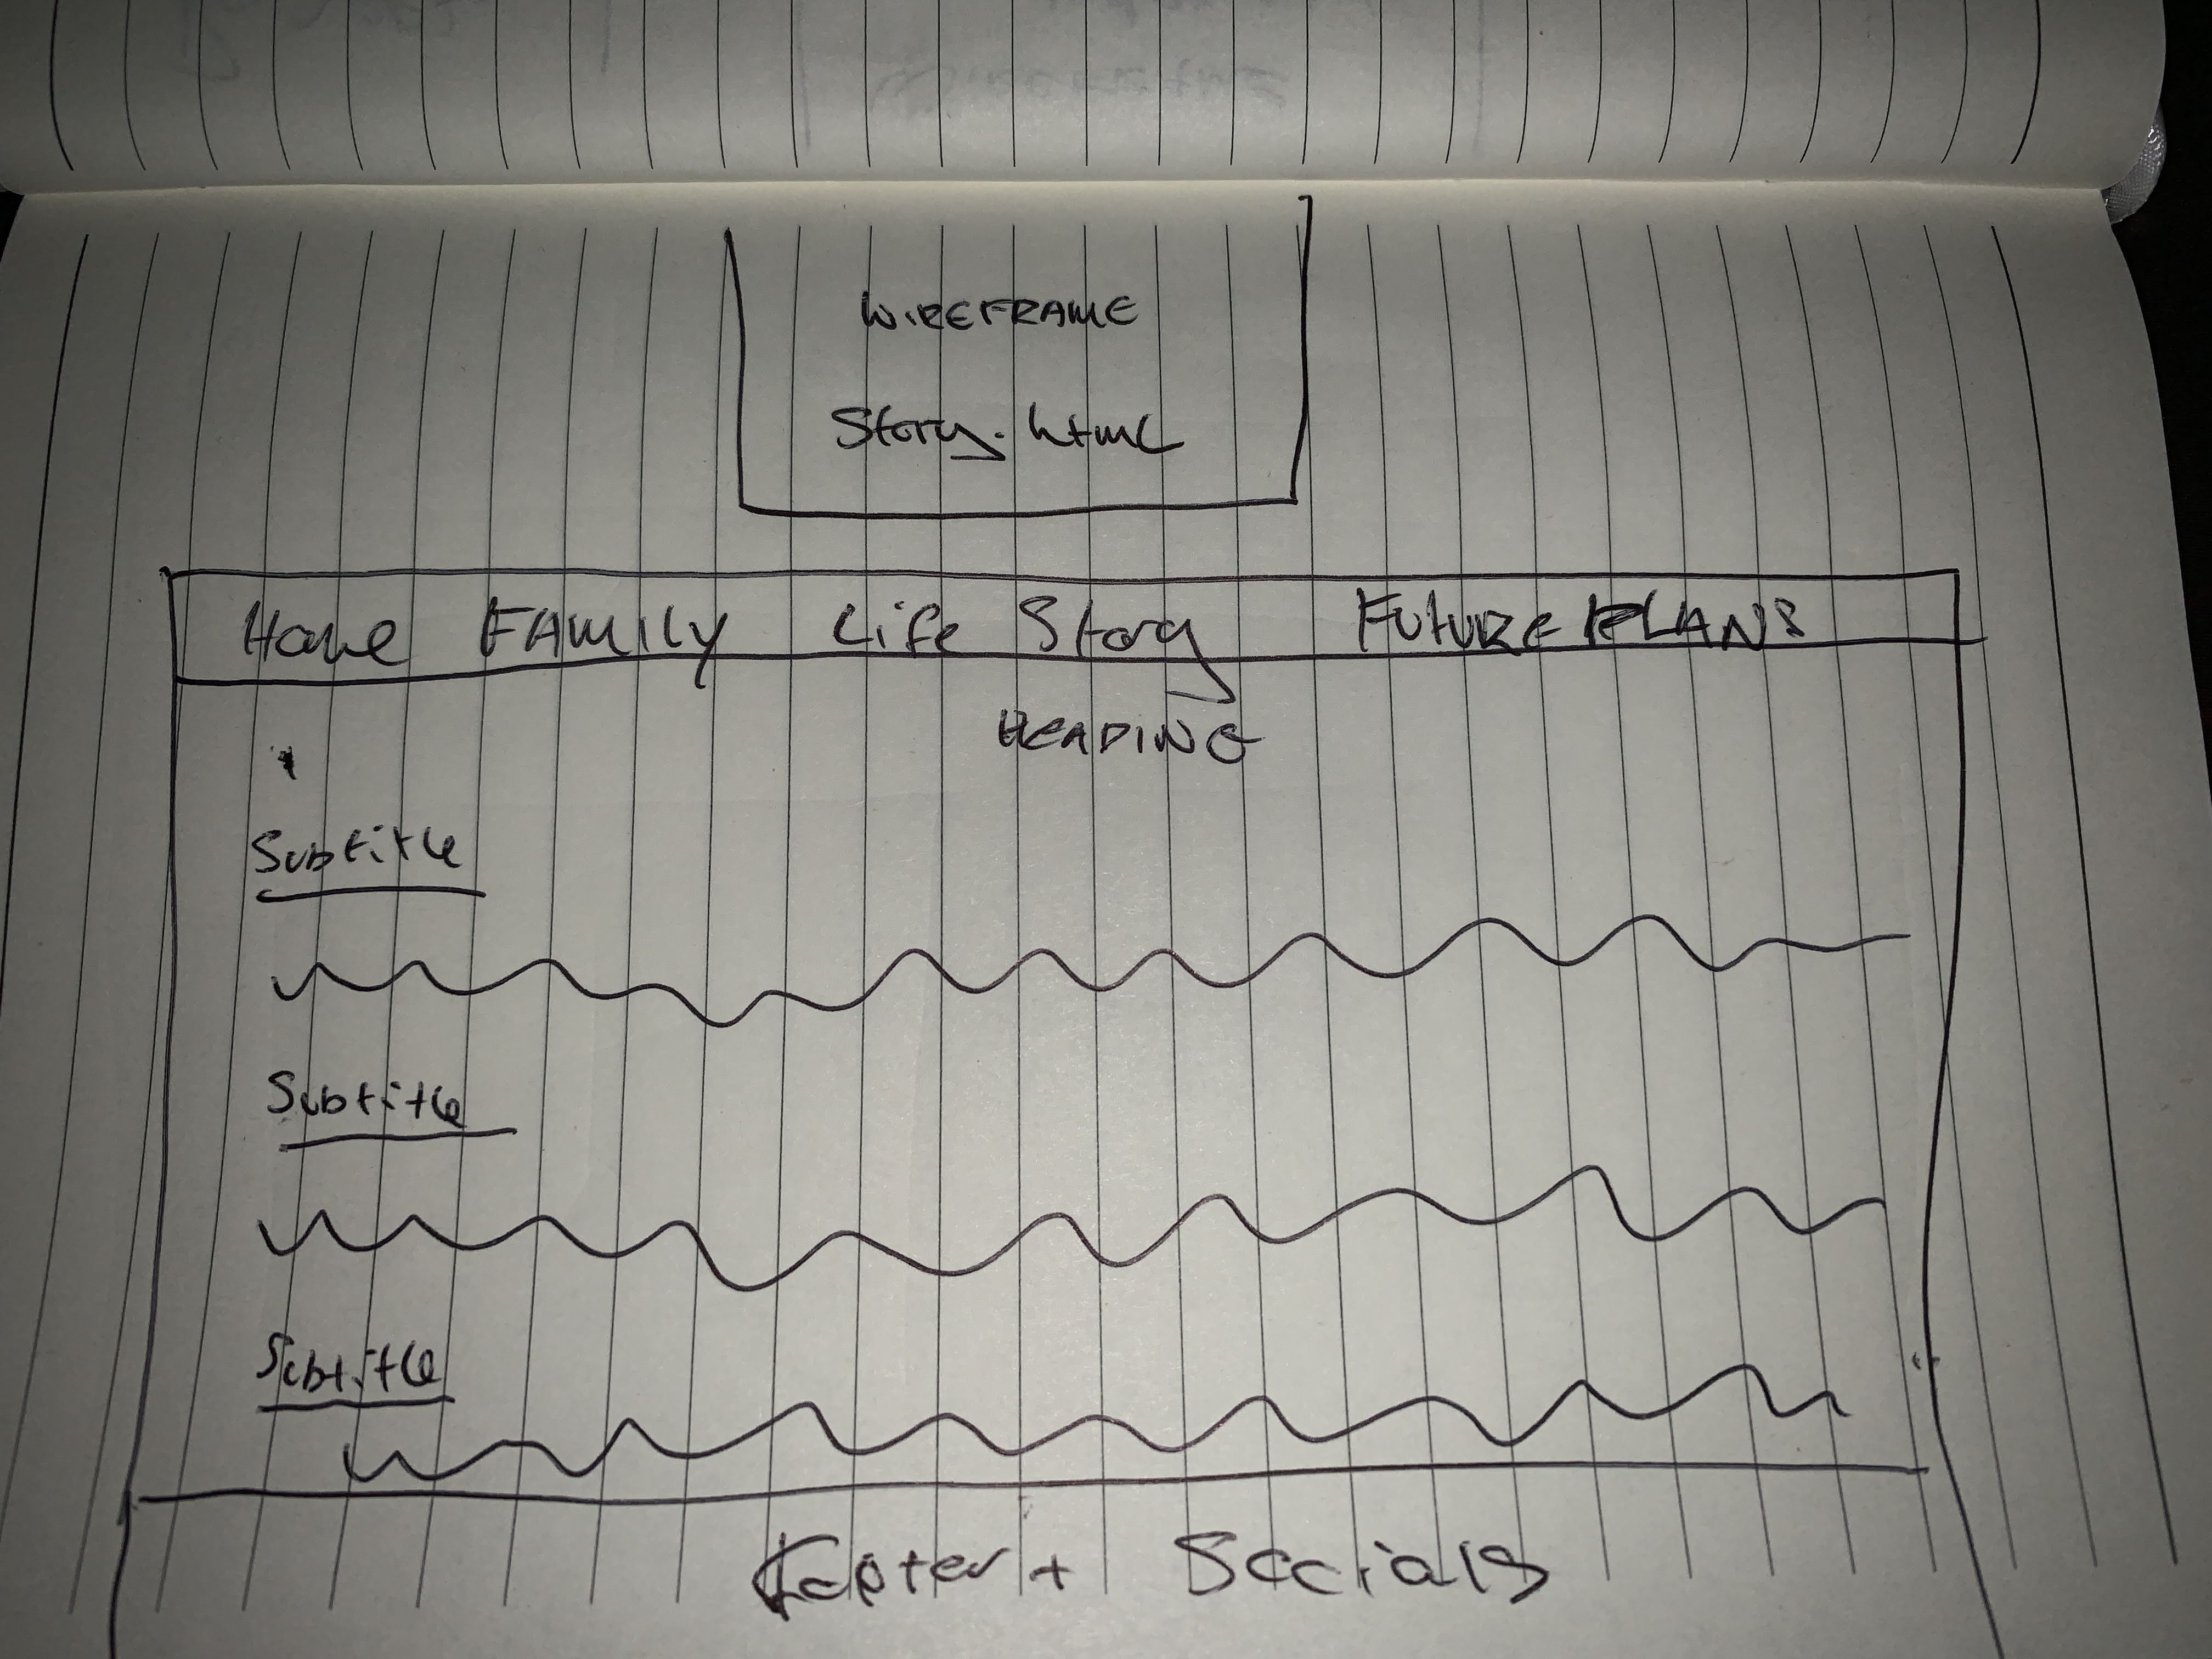 WIREFRAME
Story.html
Home FAMily Life Story FutuRe PLANS
HEADING
Subtitle
Subtitle
Subtitle
+ Socials